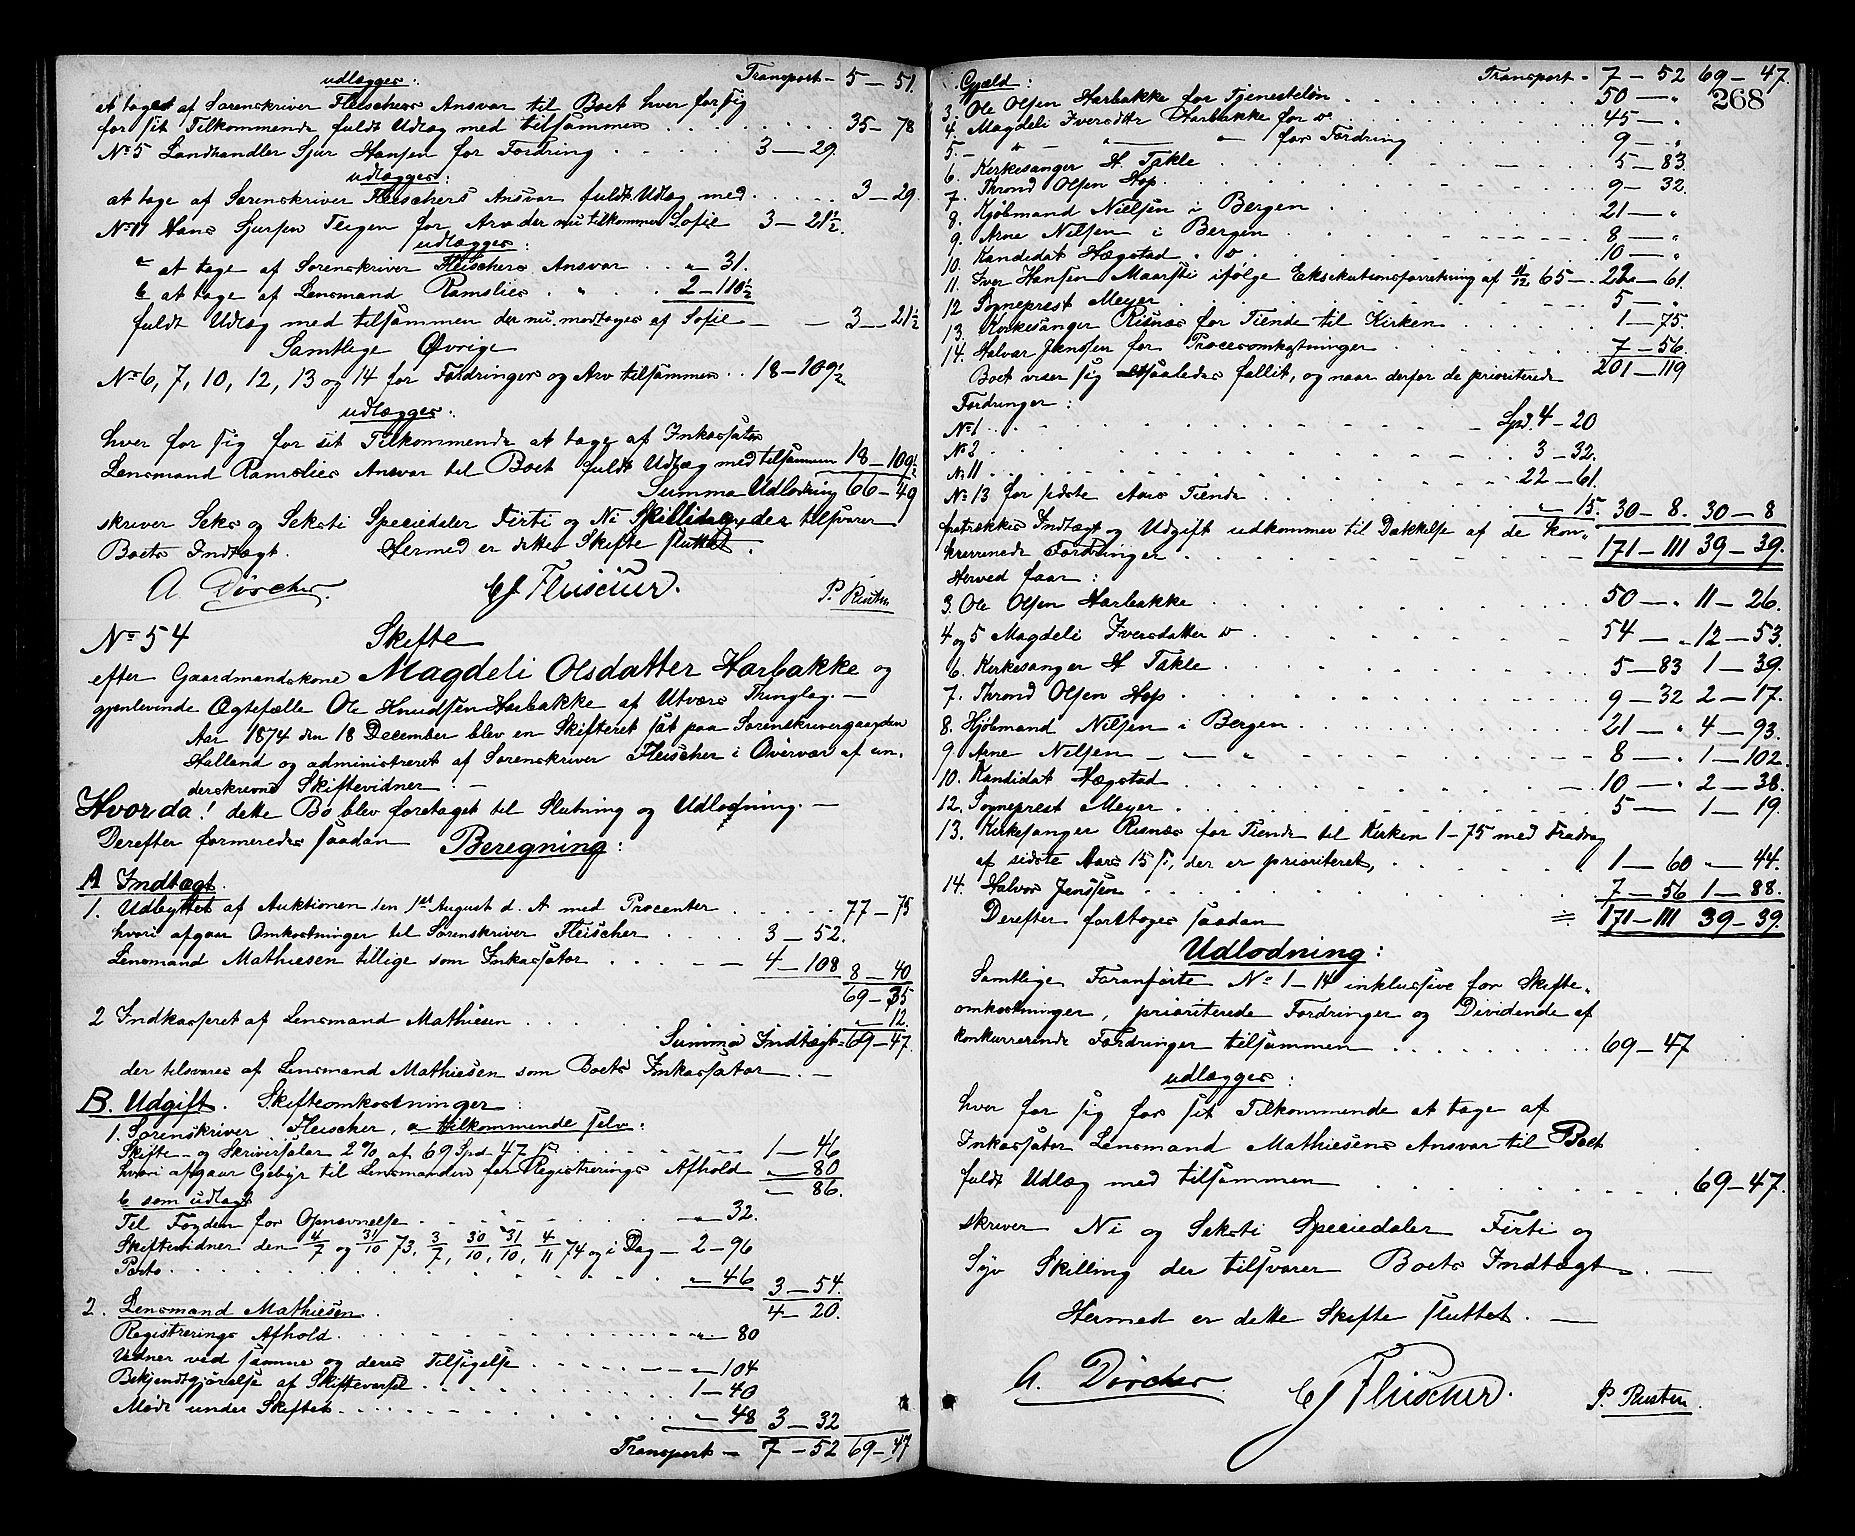 udlægges: Transport - 5 - 51.
at taget af Sorenskriver Fleischers Ansvar til Boet hver for sig
for sit Tilkommende fuldt Udlæg med tilsammen . . . 35 - 78
No 5 Landhandler Sjur Hansen for Fordring . . . 3 - 29.
udlægges:
at tage af Sorenskriver Fleischers Ansvar fuldt Udlæg med . . . 3 - 29.
No 11 Hans Sjursen Teigen for Arv der nu tilkommer Sofie 3 - 21½.
udlægges:
a at tage af Sorenskriver Fleischers Ansvar . . " 31.
b at tage af Lensmand Ramslies . " . 2 - 110½
fuldt Udlæg med tilsammen der nu modtages af Sofie - - 3 - 21½
Samtlige Øvrige
No 6, 7, 10, 12, 13 og 14 for Fordringer og Arv tilsammen . . 18 - 109½
udlægges:
hver for sig for sit Tilkommende at tage af Inkassator
Lensmand Ramslies Ansvar til Boet fuldt Udlæg med tilsammen 18 - 109½
Summa Udlodning 66 - 49
skriver Seks og Seksti Speciedaler Firti og Ni Skilling, der tilsvarer
Boets Indtægt. Hermed er dette Skifte sluttet.
A. Dörcher. CJ Fleischer. P. Rusten
No 54 Skifte
efter Gaardmandskone Magdeli Olsdatter Harbakke og
gjenlevende Ægtefælle Ole Knudsen Harbakke af Utvær Thinglag. -
Aar 1874 den 18 December blev en Skifteret sat paa Sorenskrivergaarden
Halland og administreret af Sorenskriver Fleischer i Overvær af un-
derskrevne Skiftevidner. -
Hvorda! dette Bo blev foretaget til Slutning og Udlodning. -
Derefter formeredes saadan Beregning:
A Indtægt.
1. Udbyttet af Auktionen den 1st August d. A med Procenter . . . 77 - 75
hvori afgaar Omkostninger til Sorenskriver Fleischer . . . 3 - 52.
Lensmand Mathiesen tillige som Inkassator . . . 4 - 108 8 - 40
69 - 35
2 Indkasseret af Lensmand Mathiesen . . . " 12.
Summa Indtægt - 69 - 47.
der tilsvares af Lensmand Mathiesen som Boets Inkassator. -
B. Udgift. Skifteomkostninger:
1. Sorenskriver Fleischer, a tilkommende selv:
Skifte- og Skriversalær 2% af 69 Spd 47 ß . . . 1 - 46
hvori afgaar Gebyr til Lensmanden for Registrerings Afhold " 80
" 86.
b som udlagt
Til Fogden for Opnævnelse . . . " 32.
Skiftevidner den 4/7 og 31/10 73, 3/7, 30/10, 31/10, 4/11 74 og i Dag - 2 - 96
Porto . . . " 46 3 - 54.
4 - 20.
2. Lensmand Mathiesen.
Registrerings Afhold . . . " 80
Vidner ved samme og deres Tilsigelse . . . " 104
Bekjendtgjørelse af Skiftevarsel . . . 1 - 40
Møde under Skiftet . . . " 48 3 - 32
Transport - 7 - 52 69 - 47
Gjæld: Transport - 7 - 52 69 - 47.
268
3. Ole Olsen Harbakke for Tjenesteløn . . . 50 - "
4. Magdeli Iversdtr Harbakke for do . . . 45 - "
5. - " - " - " for Fordring . . . 9 - "
6. Kirkesanger H. Takle . . . 5 - 83.
7. Thrond Olsen Hop . . . 9 - 32.
8. Kjøbmand Nielsen i Bergen . . . 21 - "
9. Arne Nilsen i Bergen . . . 8 - "
10. Kandidat Hægstad . do . . . 10 - "
11. Iver Hansen Maarsti ifølge Eksekutionsforretning af 4/12 65 - 22 - 61.
12 Sogneprest Meyer . . . 5 - "
13. Kirkesanger Risnæs for Tiende til Kirken . . . 1 - 75.
14. Halvor Jenssen for Procesomkostninger . . . 7 - 56.
Boet viser sig saaledes fallit, og naar derfor de prioriterede 201 - 119
Fordringer:
No 1 . . . Spd. 4 - 20
No 2 . . . 3 - 32.
No 11 . . . 22 - 61.
No 13 for sidste Aars Tiende . . . " 15. 30 - 8. 30 - 8
fratrækkes Indtægt og Udgift udkommer til Dækkelse af de kon-
kurrerende Fordringer . . . 171 - 111 39 - 39.
Herved faar:
3. Ole Olsen Harbakke . . . 50 - " 11 - 26.
4 og 5 Magdeli Iversdatter do . . . 54 - " 12 - 53.
6. Kirkesanger H Takle . . . 5 - 83 1 - 39.
7. Thrond Olsen Hop . . . 9 - 32 2 - 17.
8. Kjøbmand Nilsen i Bergen . . . 21 - " 4 - 93.
9 Arne Nilsen - " - " . . . 8 - " 1 - 102.
10. Kandidat Hægstad . . . 10 - " 2 - 38.
12. Sogneprest Meyer . . . 5 - 1 - 19.
13. Kirkesanger Risnæs for Tiende til Kirken 1 - 75 med Fradrag
af sidste Aars 15 ß, der er prioriteret, . . . 1 - 60 " 44.
14. Halvor Jenssen . . . 7 - 56 1 - 88.
Derefter foretoges saadan = 171 - 111 39 - 39.
Udlodning:
Samtlige Foranførte No 1 - 14 inklusive for Skifte-
omkostninger, prioriterede Fordringer og Dividende af
konkurrerende Fordringer tilsammen . . . 69 - 47
udlægges:
hver for sig for sit Tilkommende at tage af
Inkassator Lensmand Mathiesens Ansvar til Boet
fuldt Udlæg med tilsammen . . . 69 - 47.
skriver Ni og Seksti Speciedaler Firti og
Syv Skilling der tilsvarer Boets Indtægt. -
Hermed er dette Skifte sluttet. -
A. Dörcher. CJ Fleischer. P. Rusten.